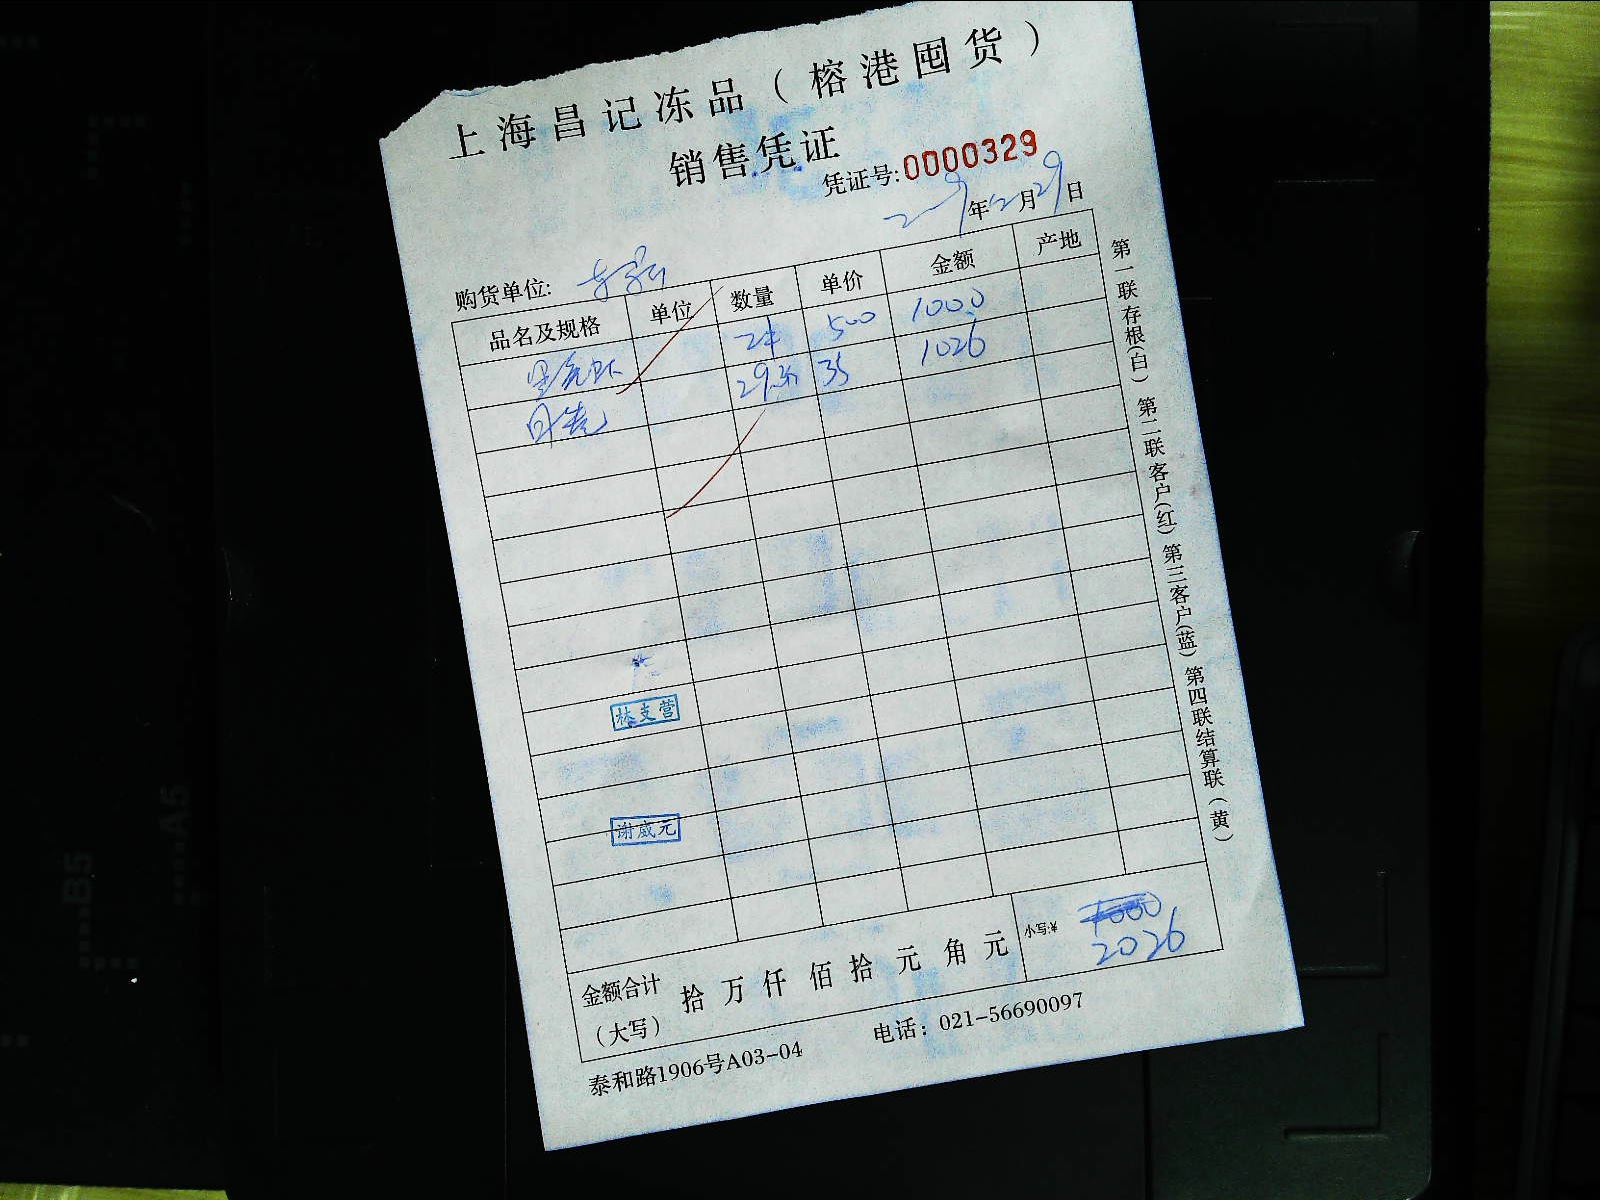 上海昌记冻品（榕港囤货）
销售凭证
凭证号:0000329
年 月29日
购货单位:
品名及规格 单位 数量 单价 金额 产地
500 1000
35 1026
林支营
谢威元
金额合计（大写） 拾 万 仟 佰 拾 元 角 元 小写:¥ 2026
泰和路1906号A03-04 电话：021-56690097
第一联存根(白) 第二联客户(红) 第三客户(蓝) 第四联结算联(黄)
B5
A5